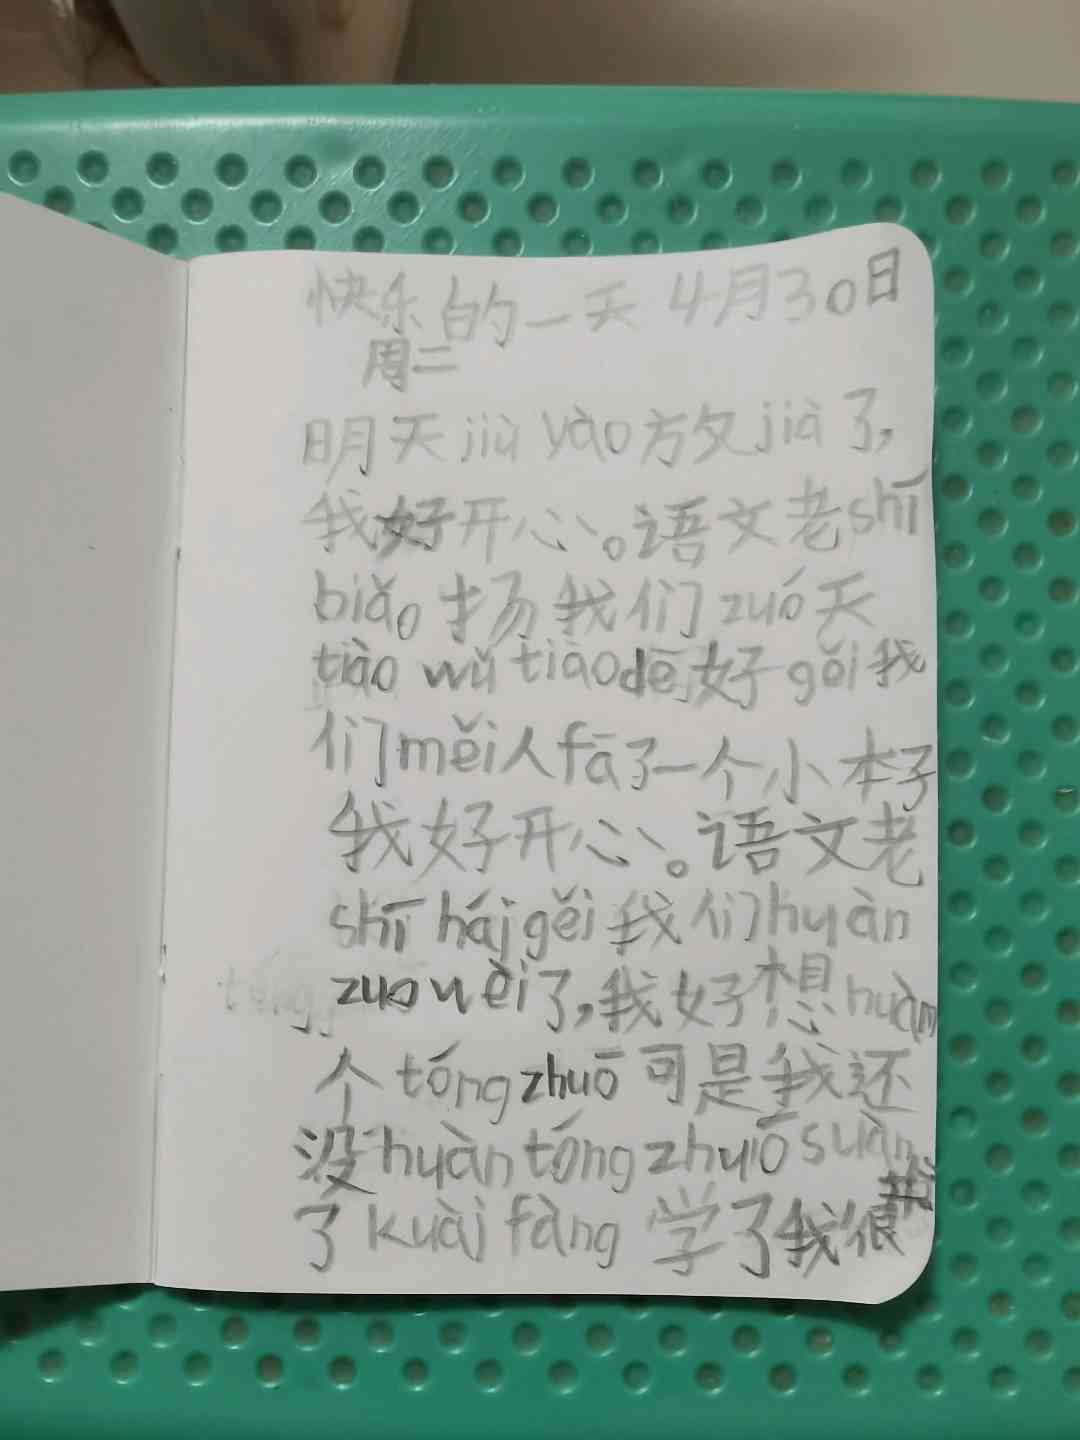 快乐的一天 4月30日
周二
明天jiù yào放jià了,
我好开心。语文老shī
biǎo扬我们zuó天
tiào wǔ tiàodē好gěi我
们měi人fā了一个小本子
我好开心。语文老
shī hái gěi我们huàn
zuo wèi了,我好想huàn
个tóng zhuō可是我还
没huàn tóng zhuō suàn
了kuài fàng学了我很